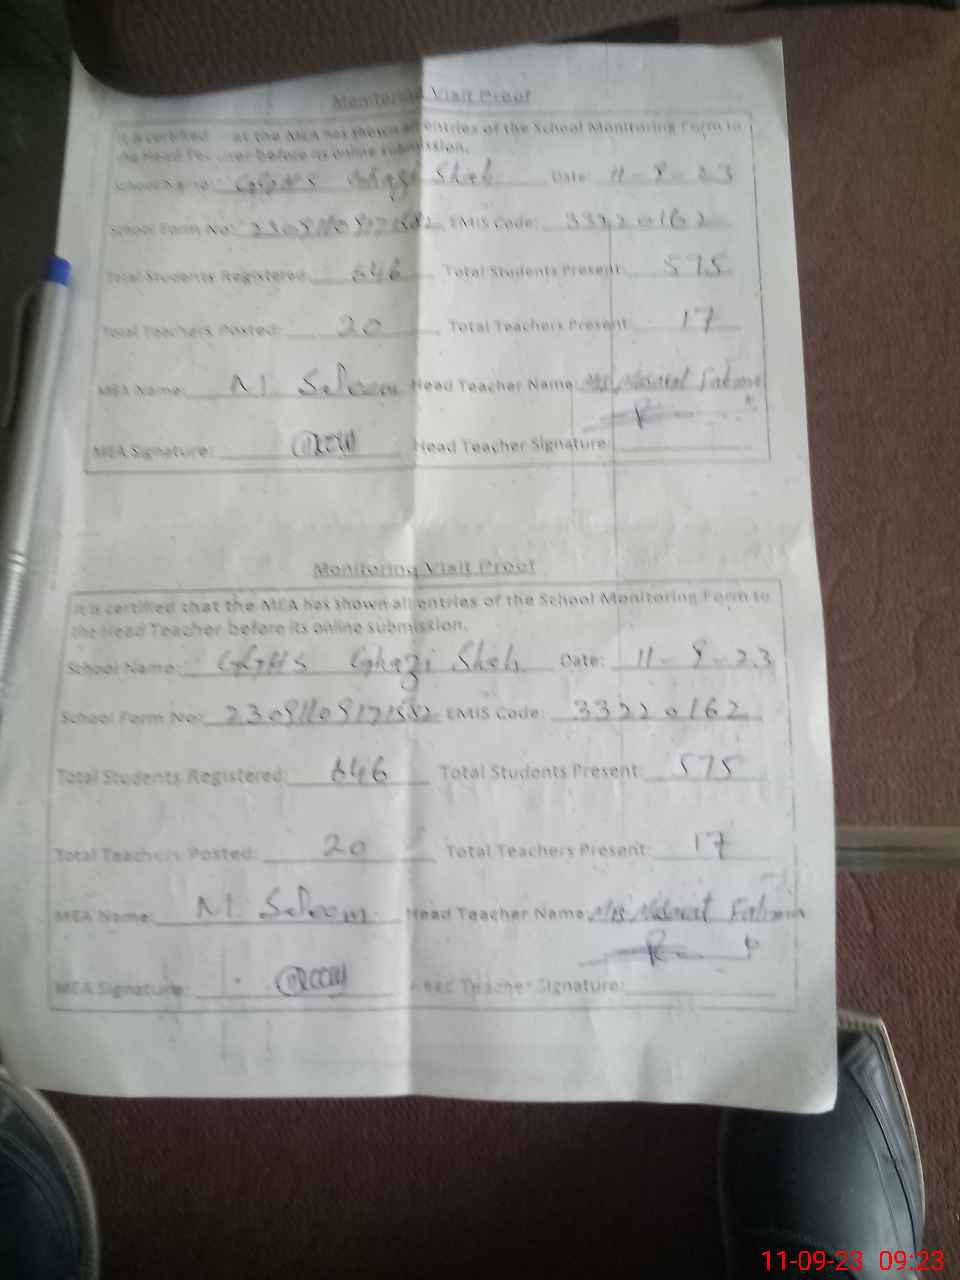 Monitoring Visit Proof
It is certified at the MEA has shown all entries of the School Monitoring Form to
the Head Teacher before its online submission.
School Name: GGHS Ghazi Shah Date: 11-9-23
School Form No: 23091109171582 EMIS Code: 33220162
Total Students Registered: 646 Total Students Present: 575
Total Teachers Posted: 20 Total Teachers Present: 17
MEA Name: M. Saleem Head Teacher Name: Mrs Nusrat
MEA Signature: Head Teacher Signature:
Monitoring Visit Proof
It is certified that the MEA has shown all entries of the School Monitoring Form to
the Head Teacher before its online submission.
School Name: GGHS Ghazi Shah Date: 11-9-23
School Form No: 23091109171582 EMIS Code: 33220162
Total Students Registered: 646 Total Students Present: 575
Total Teachers Posted: 20 Total Teachers Present: 17
MEA Name: M. Saleem Head Teacher Name: Mrs Nusrat
MEA Signature: Teacher Signature:
11-09-23 09:23